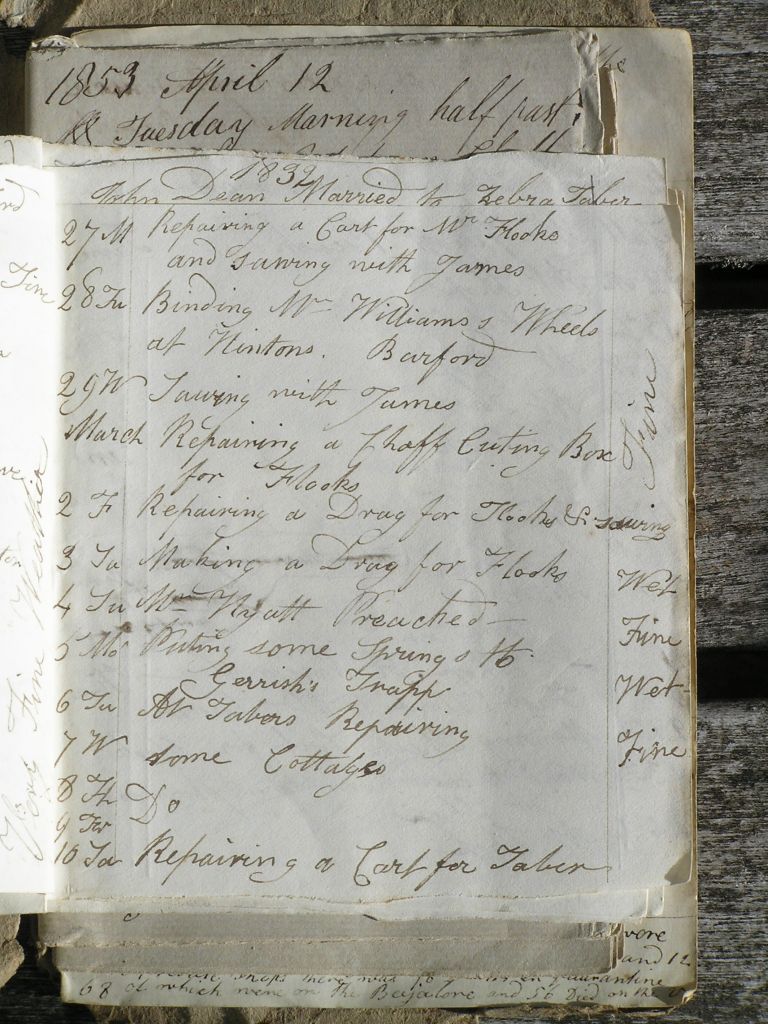 1853 April 12
Tuesday Marning half past
1832
John Dean Married to Zebra Taber
27 M Repairing a Cart for Mr Flooks
and sawing with James
28 Tu Binding Mr Williams s Wheels
at Hintons. Barford
29 W Sawing with James
March Repairing a Chaff Cuting Box
for Flooks
Fine
2 F Repairing a Drag for Flooks & sawing
3 Sa Making a Drag for Flooks Wet
4 Su Mr Wyatt Preached Fine
5 Mo Puting some Springs to
Gerrish's Trapp Wet
6 Tu At Tabers Repairing
7 W some Cottages Fine
8 Th Do
9 Fr
10 Sa Repairing a Cart for Taber
Fine
Very Fine Weather
and 12
68 of which were on the and 56 Died on the